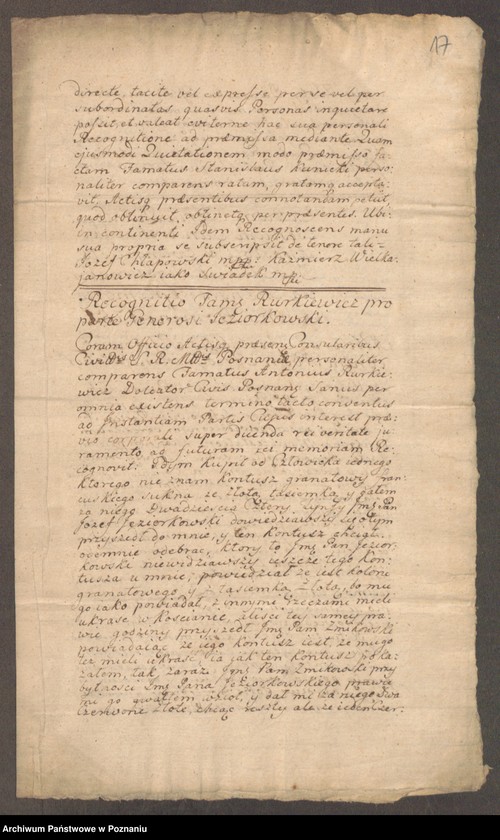 17
directe, tacite vel expresse per se vel per
subordinatas quasvis Personas inquietare
possit, et valeat eviterne hac sua personali
Recognitione ad præmissa mediante Quam
ejusmodi Quietationem modo præmisso fa-
ctam Famatus Stanislaus Kunicki perso-
naliter comparens ratam, gratamq accepta-
vit, Actisq præsentibus connotandam petiit,
quod obtinuit, obtinetq per præsentes. Ubi
in continenti Idem Recognoscens manu
sua propria se subscripsit de tenore tali-
Jozef Chłapowski mpp: Kazimierz Wielka-
janowicz iako Swiadek mp.
Recognitio Fams Rurkiewicz pro
parte Generosi Jeziorkowski.
Coram Officio Actisq præsent Consularibus
Civittis S. R. Mttis Posnaniæ personaliter
comparens Famatus Antonius Rurkie-
wicz Doleator Civis Posnans Sanus per
omnia existens termino tacto conventus
ad Instantiam Partis Cujus interest præ-
vio corporali super dicenda rei veritate ju-
ramento, ad futuram rei memoriam Re-
cognovit: Idem kupił od Człowieka iednego
ktorego nie znam kontusz granatowy fran-
cuskiego sukna ze złotą tasiemką y dałem
za niego Dwadziescia Cztery Tynfy Jmć Pan
Jozef Jeziorkowski dowiedziawszy się o tym
przyszedł do mnie, y ten kontusz chciał
odemnie odebrac, ktory to Jmć Pan Jezior-
kowski niewidziawszy ieszcze tego kon-
tusza u mnie, powiedział że iest koloru
granatowego y z tasiemką złotą, bo mu
go iako powiadał, z innymi rzeczami mieli
ukrasc w kosciele, zlisci tey samey pra-
wie godziny przyszedł Jmć Pan Zmikowski
powiadaiąc że iego kontusz iest, że mu go
też mieli ukrasć, Ja jak ten kontusz poka-
załem, tak zaraz Jmć Pan Zmikowski przy
bytnosci Jmć Pana Jeziorkowskiego prawie
mi go gwałtem wziął, y dał mi za niego Dwa
Czerwone Złote, chcąc reszty ale że ieden Czer-